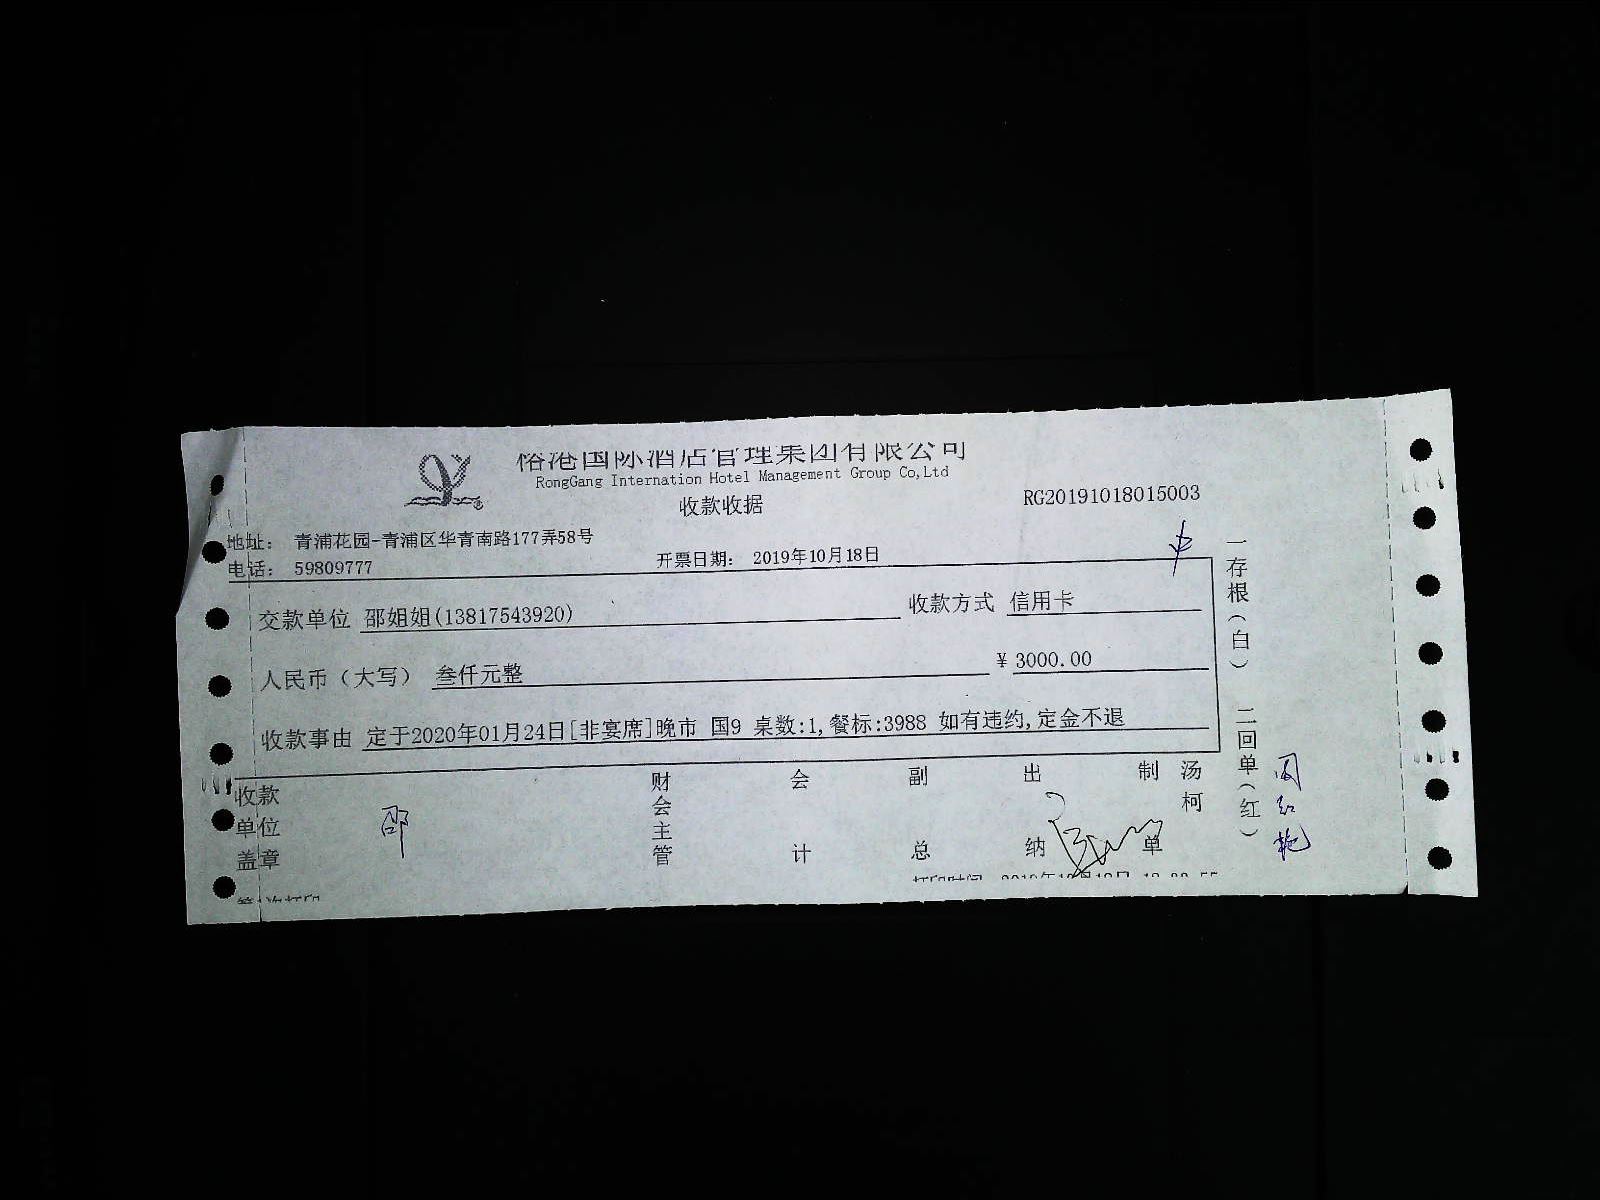 国际酒店管理集团有限公司
RongGang Internation Hotel Management Group Co,Ltd
收款收据
RG20191018015003
地址: 青浦花园-青浦区华青南路177弄58号
电话: 59809777
开票日期: 2019年10月18日
交款单位 邵姐姐(13817543920) 收款方式 信用卡
人民币(大写) 叁仟元整 ¥ 3000.00
收款事由 定于2020年01月24日[非宴席]晚市 国9 桌数:1,餐标:3988 如有违约,定金不退
收款单位盖章
邵
财会主管
会计
副总
出纳
制单
汤柯
一存根(白) 二回单(红)